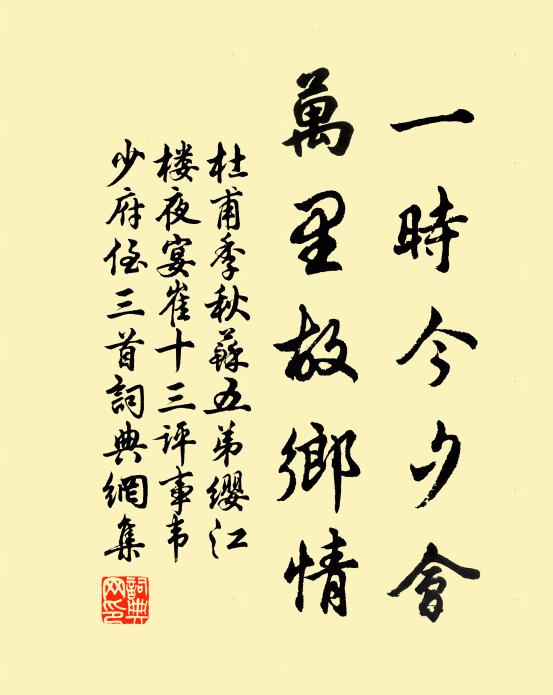 一時今夕會
萬里故鄉情
杜甫季秋蘇五弟纓江
楼夜宴崔十三评事韦
少府侄三首詞典網集
詞典
网印